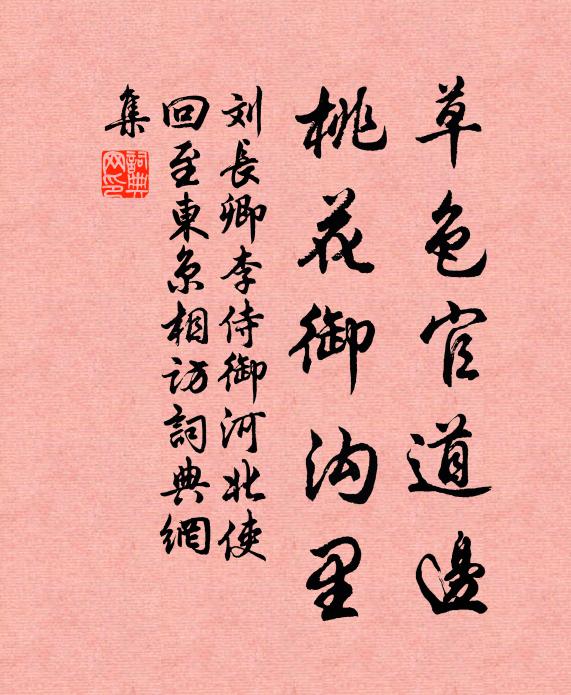 草色官道邊
桃花御沟里
刘長卿李侍御河北使
回至東京相访詞典網
集
詞典网印